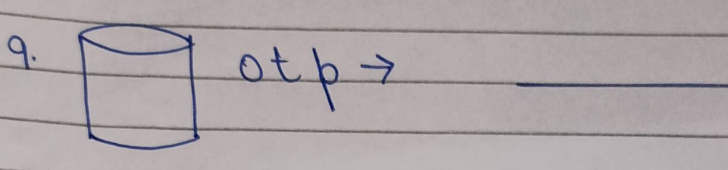 9. otp →